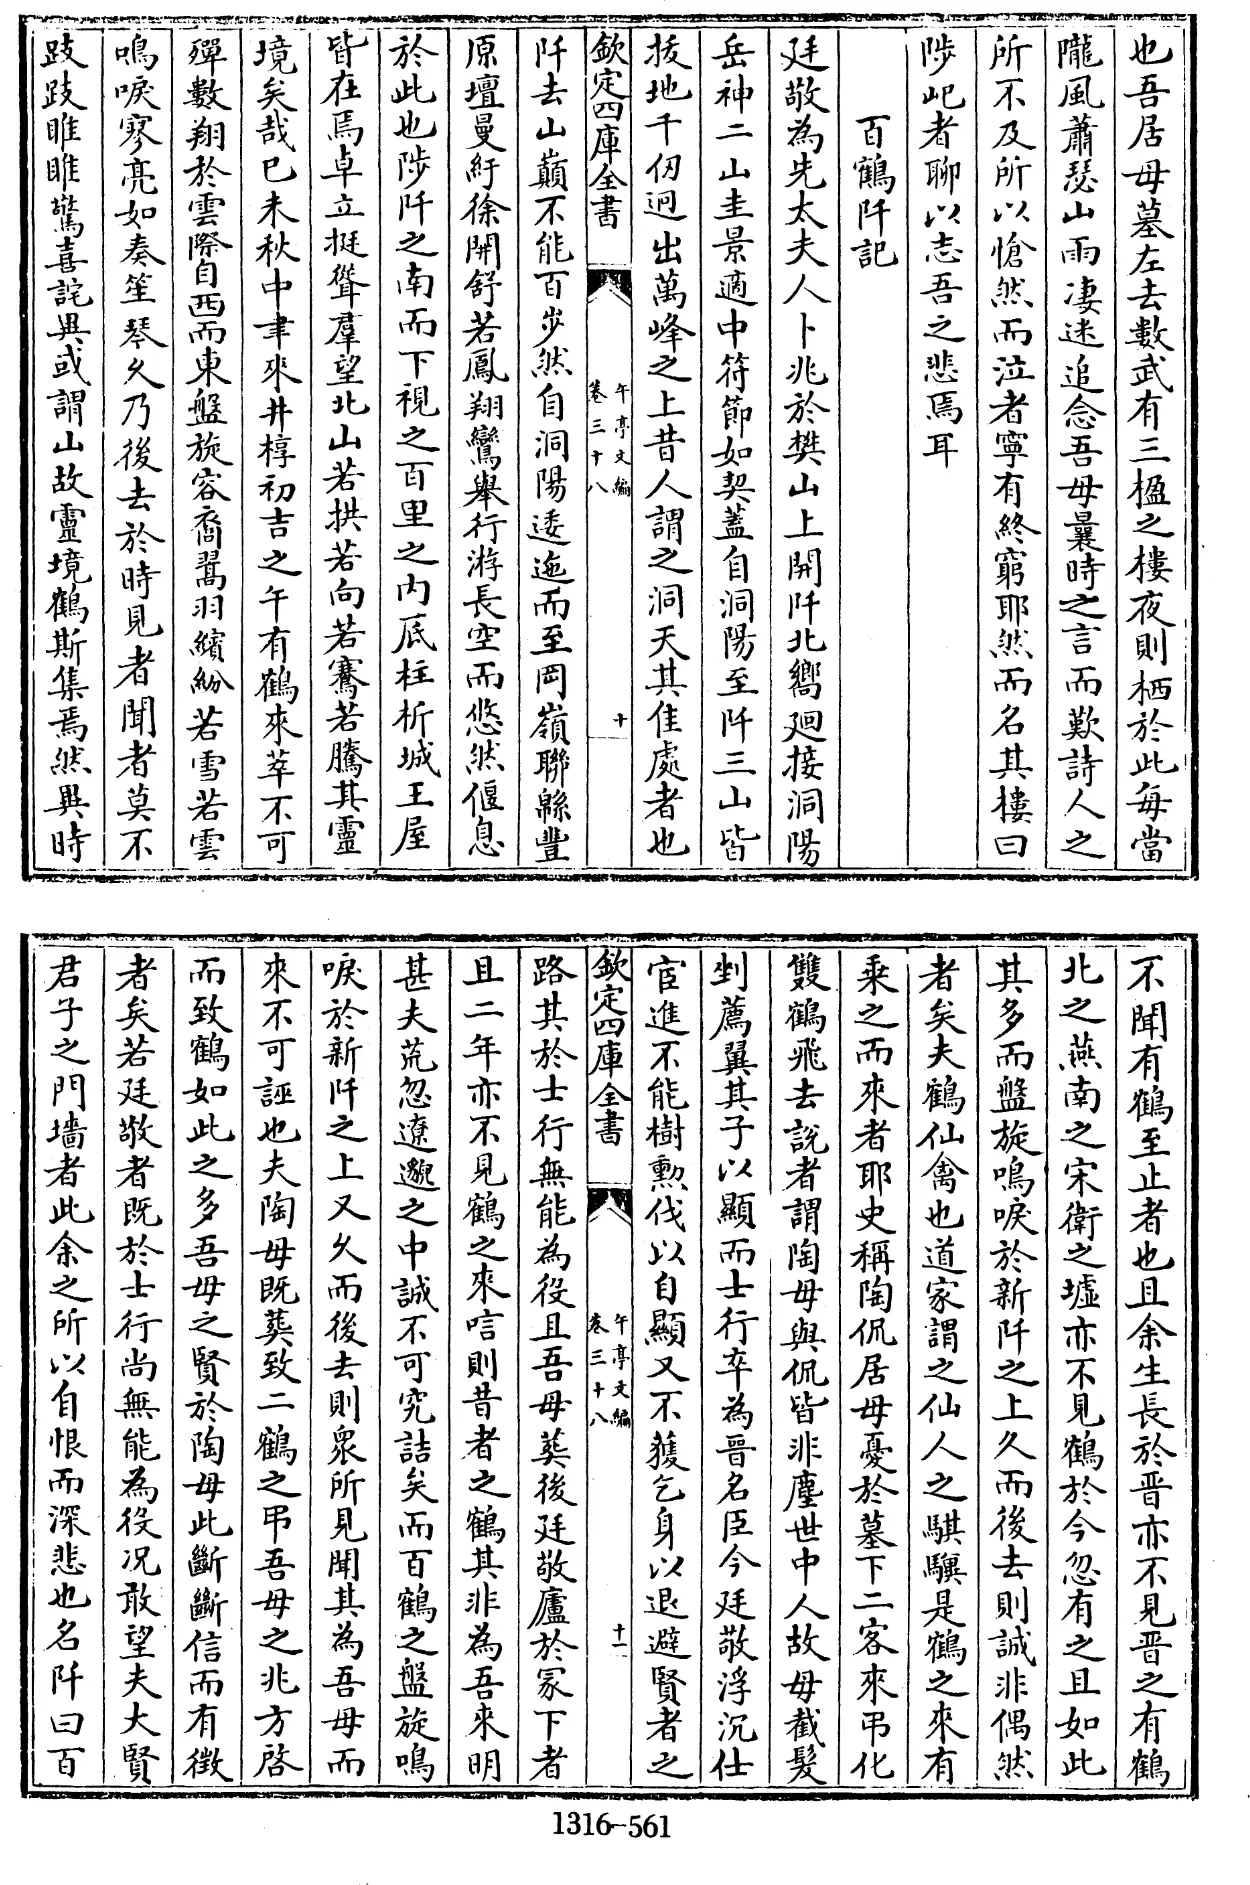 也吾居母墓左去數武有三楹之樓夜則栖於此每當
隴風蕭瑟山雨淒迷追念吾母曩時之言而歎詩人之
所不及所以愴然而泣者寧有終窮耶然而名其樓曰
陟屺者聊以志吾之悲焉耳
百鶴阡記
廷敬為先太夫人卜兆於樊山上開阡北嚮廻接洞陽
岳神二山圭景適中符節如契蓋自洞陽至阡三山皆
拔地千仞迥出萬峰之上昔人謂之洞天其佳處者也
欽定四庫全書
午亭文編
卷三十八
十
阡去山巔不能百步然自洞陽逶迤而至岡嶺聯緜豐
原壇曼紆徐開舒若鳳翔鸞舉行游長空而悠然偃息
於此也陟阡之南而下視之百里之内底柱析城王屋
皆在焉卓立挺聳羣望北山若拱若向若騫若騰其靈
境矣哉已未秋中聿來井椁初吉之午有鶴來萃不可
殫數翔於雲際自西而東盤旋容裔翯羽繽紛若雪若雲
鳴唳寥亮如奏笙琴乆乃後去於時見者聞者莫不
跂跂睢睢驚喜詫異或謂山故靈境鶴斯集焉然異時
不聞有鶴至止者也且余生長於晉亦不見晉之有鶴
北之燕南之宋衛之墟亦不見鶴於今忽有之且如此
其多而盤旋鳴唳於新阡之上久而後去則誠非偶然
者矣夫鶴仙禽也道家謂之仙人之騏驥是鶴之來有
乘之而來者耶史稱陶侃居母憂於墓下二客來弔化
雙鶴飛去說者謂陶母與侃皆非塵世中人故母截髮
剉薦翼其子以顯而士行卒為晉名臣今廷敬浮沉仕
宦進不能樹勲伐以自顯又不獲乞身以退避賢者之
欽定四庫全書
午亭文編
卷三十八
十一
路其於士行無能為役且吾母葬後廷敬廬於冡下者
且二年亦不見鶴之來唁則昔者之鶴其非為吾來明
甚夫荒忽遼邈之中誠不可究詰矣而百鶴之盤旋鳴
唳於新阡之上又乆而後去則衆所見聞其為吾母而
來不可誣也夫陶母既葬致二鶴之弔吾母之兆方啓
而致鶴如此之多吾母之賢於陶母此斷斷信而有徵
者矣若廷敬者既於士行尚無能為役况敢望夫大賢
君子之門墻者此余之所以自恨而深悲也名阡曰百
1316-561